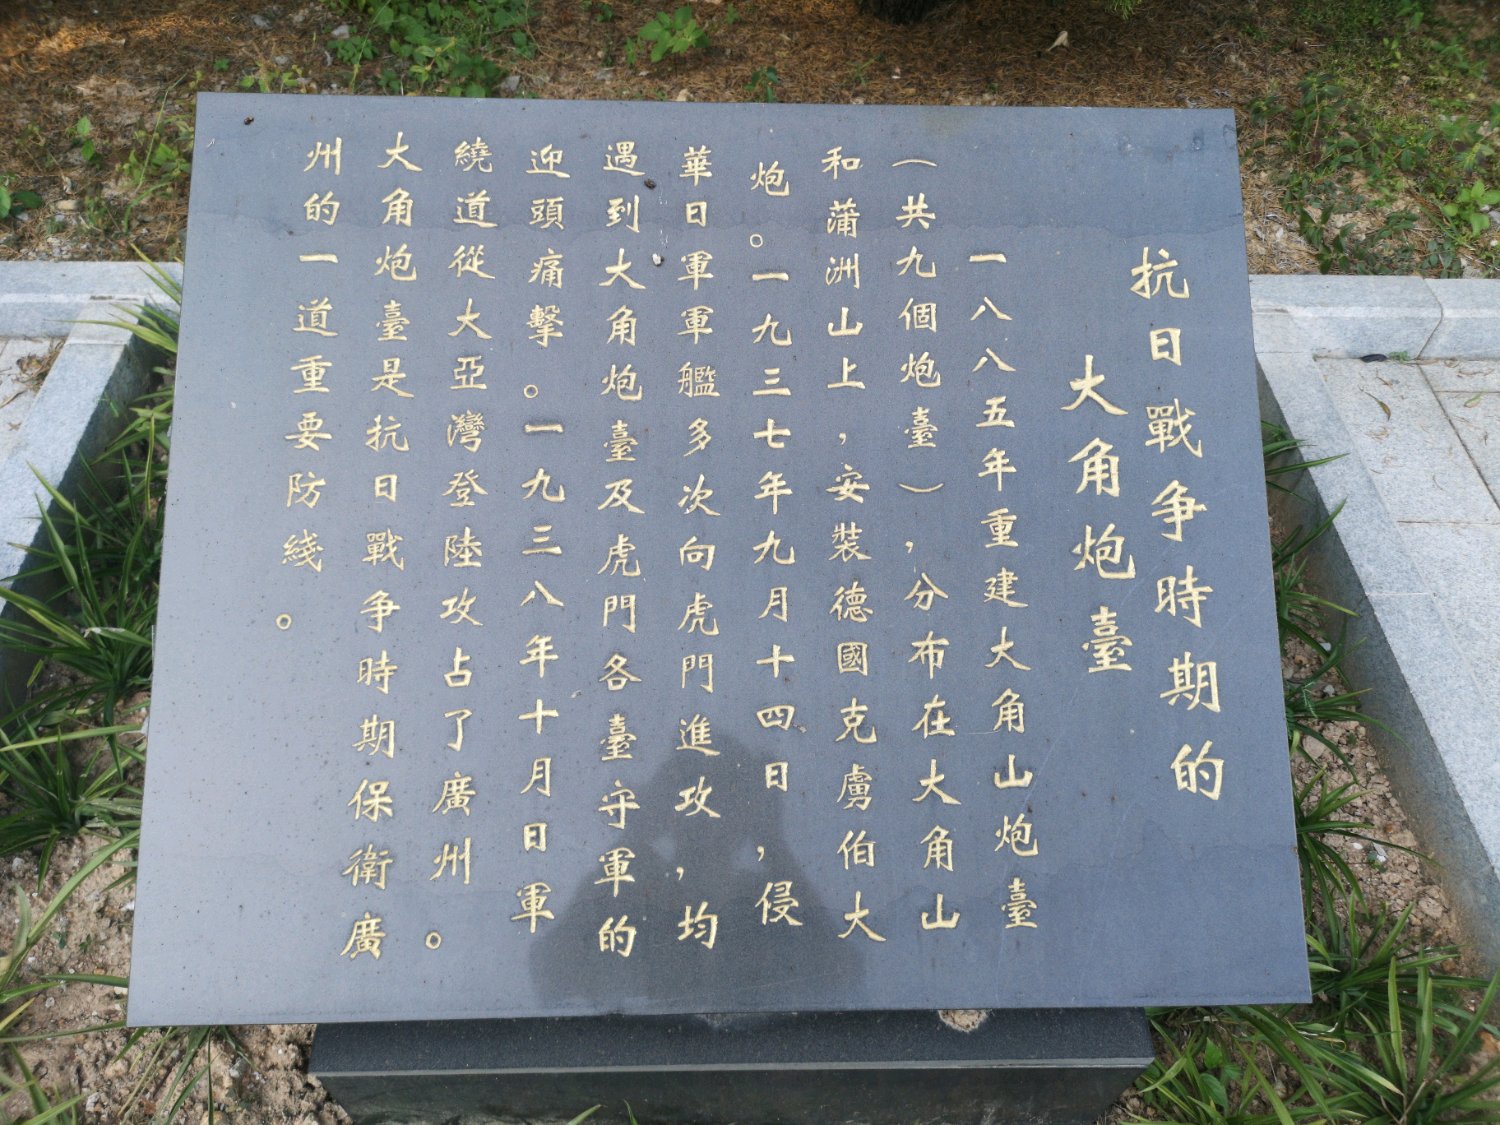 抗日戰争時期的
大角炮臺
一八八五年重建大角山炮臺
（共九個炮臺），分布在大角山
和蒲洲山上，安裝德國克虜伯大
炮。一九三七年九月十四日，侵
華日軍軍艦多次向虎門進攻，均
遇到大角炮臺及虎門各臺守軍的
迎頭痛擊。一九三八年十月日軍
繞道從大亞灣登陸攻占了廣州。
大角炮臺是抗日戰争時期保衛廣
州的一道重要防綫。